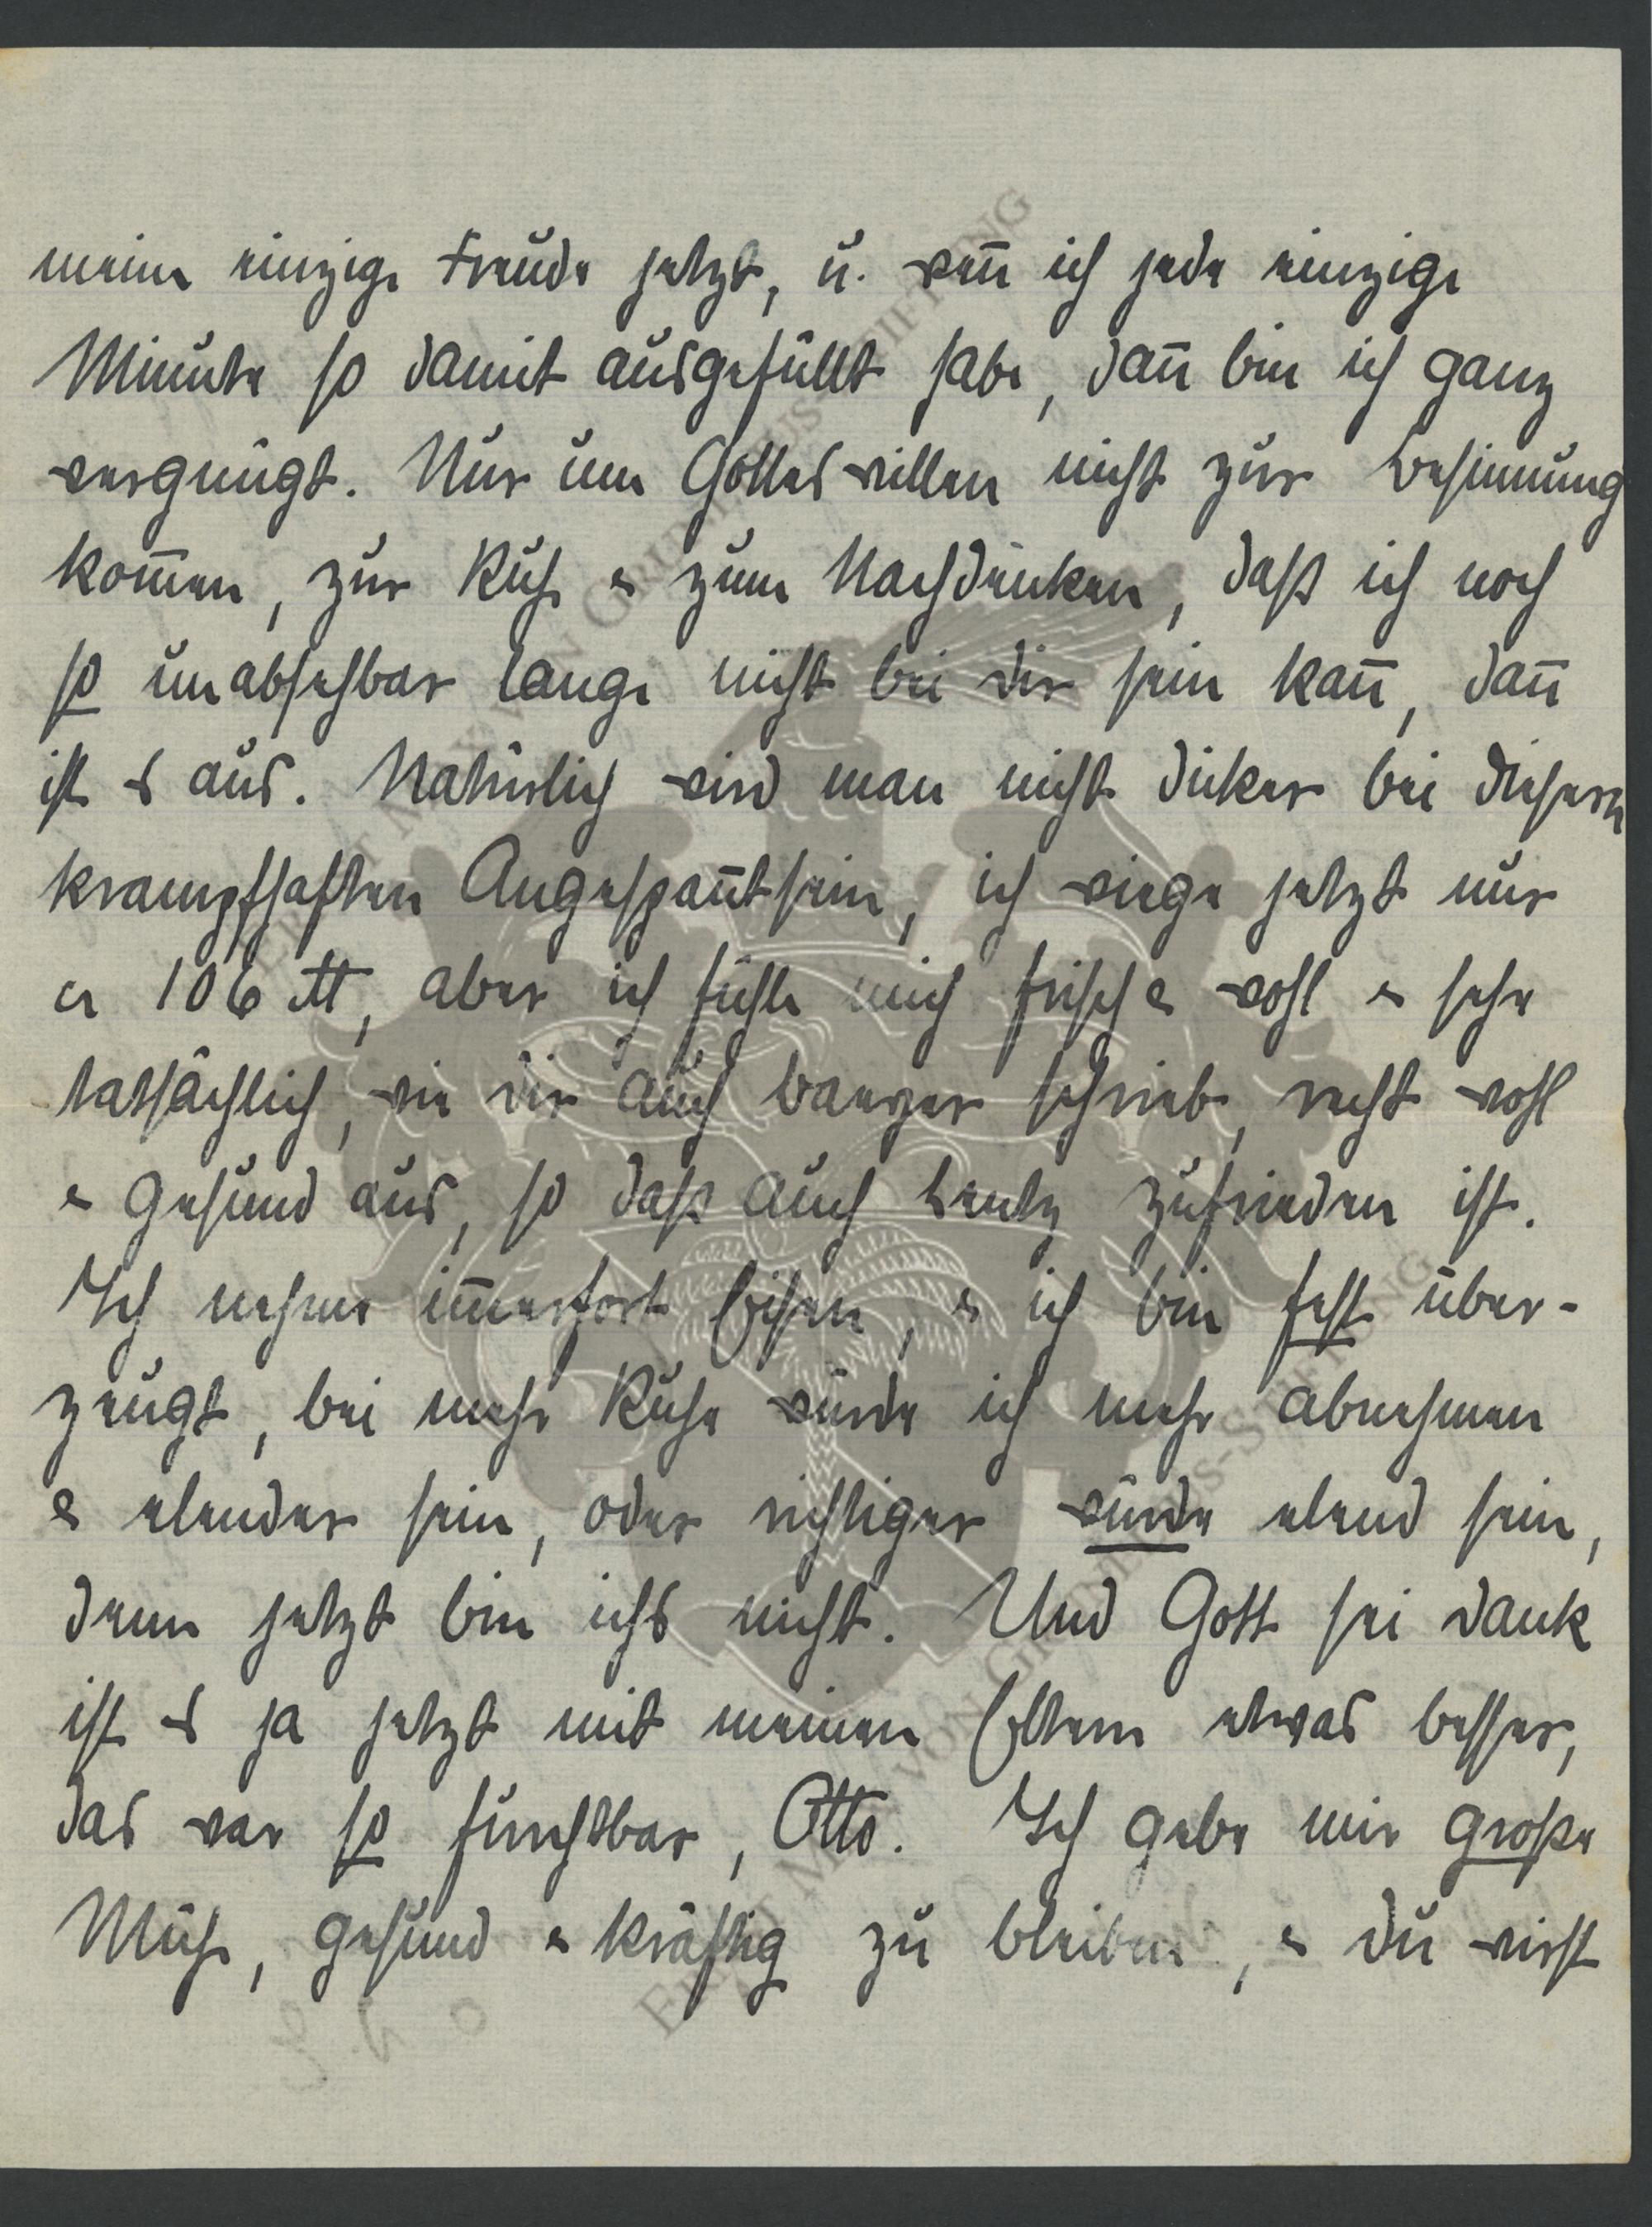 meine einzige Freude jetzt, u. wen̄ ich jede einzige
Minute so damit ausgefüllt habe, dan̄ bin ich ganz
vergnügt. Nur um Gottes willen nicht zur Besinnung
kom̄en, zur Ruhe & zum Nachdenken, daß ich noch
so unabsehbar lange nicht bei Dir sein kan̄, dan̄
ist es aus. Natürlich wird man nicht dicker bei diesem
krampfhaften Angespan̄tsein, ich wiege jetzt nur
106 ℔, aber ich fühle mich frisch & wohl & sehe
tatsächlich, wie Dir auch schrieb, recht wohl
& gesund aus, so daß auch zufrieden ist.
Ich nehme im̄erfort Eisen, & ich bin fest über-
zeugt, bei mehr Ruhe würde ich mehr abnehmen
& elender sein, oder richtiger würde elend sein,
denn jetzt bin ichs nicht. Und Gott sei Dank
ist es ja jetzt mit meinen Eltern etwas besser,
das war so furchtbar, Otto. Ich gebe mir große
Mühe, gesund & kräftig zu bleiben, & Du wirst
ERNST MAX VON GRUNELIUS-STIFTUNG
ERNST MAX VON GRUNELIUS-STIFTUNG